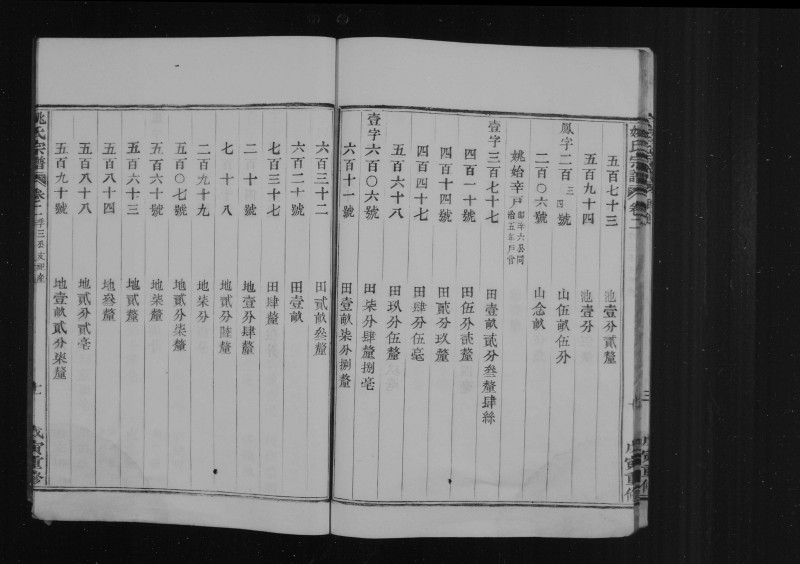 姚氏宗譜 卷二
戊寅重修
五百七十三 池壹分貳釐
五百九十四 池壹分
鳳字二百三四號 山伍畝伍分
二百〇六號 山念畝
姚始辛戶
壹字三百七十七 田壹畝貳分叁釐肆絲
四百一十號 田伍分貳釐
四百十四號 田貳分玖釐
四百四十七 田肆分伍毫
五百六十八 田玖分伍釐
壹字六百〇六號 田柒分肆釐捌毫
六百十一號 田壹畝柒分捌釐
六百三十二 田貳畝叁釐
六百二十號 田壹畝
七百三十七 田肆釐
二十號 地壹分肆釐
七十八 地貳分陸釐
二百九十九 地柒分
五百〇七號 地貳分柒釐
五百六十號 地柒釐
五百六十三 地貳釐
五百八十四 地叁釐
五百八十八 地貳分貳毫
五百九十號 地壹畝貳分柒釐
姚氏宗譜 卷二
戊寅重修